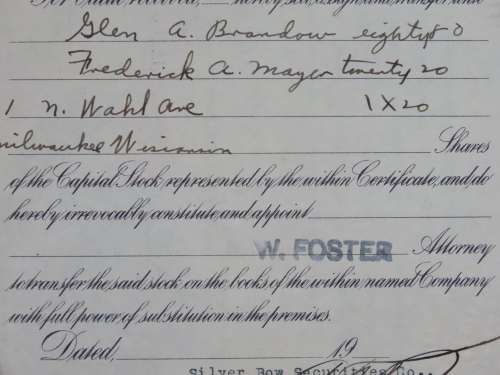 For Value received, hereby sell, assign and transfer unto
Glen A. Brandow eighty 80
Frederick A. Mayer twenty 20
1 N. Wahl Ave 1 X 20
Milwaukee Wisconsin Shares
of the Capital Stock represented by the within Certificate, and do
hereby irrevocably constitute and appoint
W. FOSTER Attorney
to transfer the said stock on the books of the within named Company
with full power of substitution in the premises.
Dated, 19
Silver Bow Securities Co.,